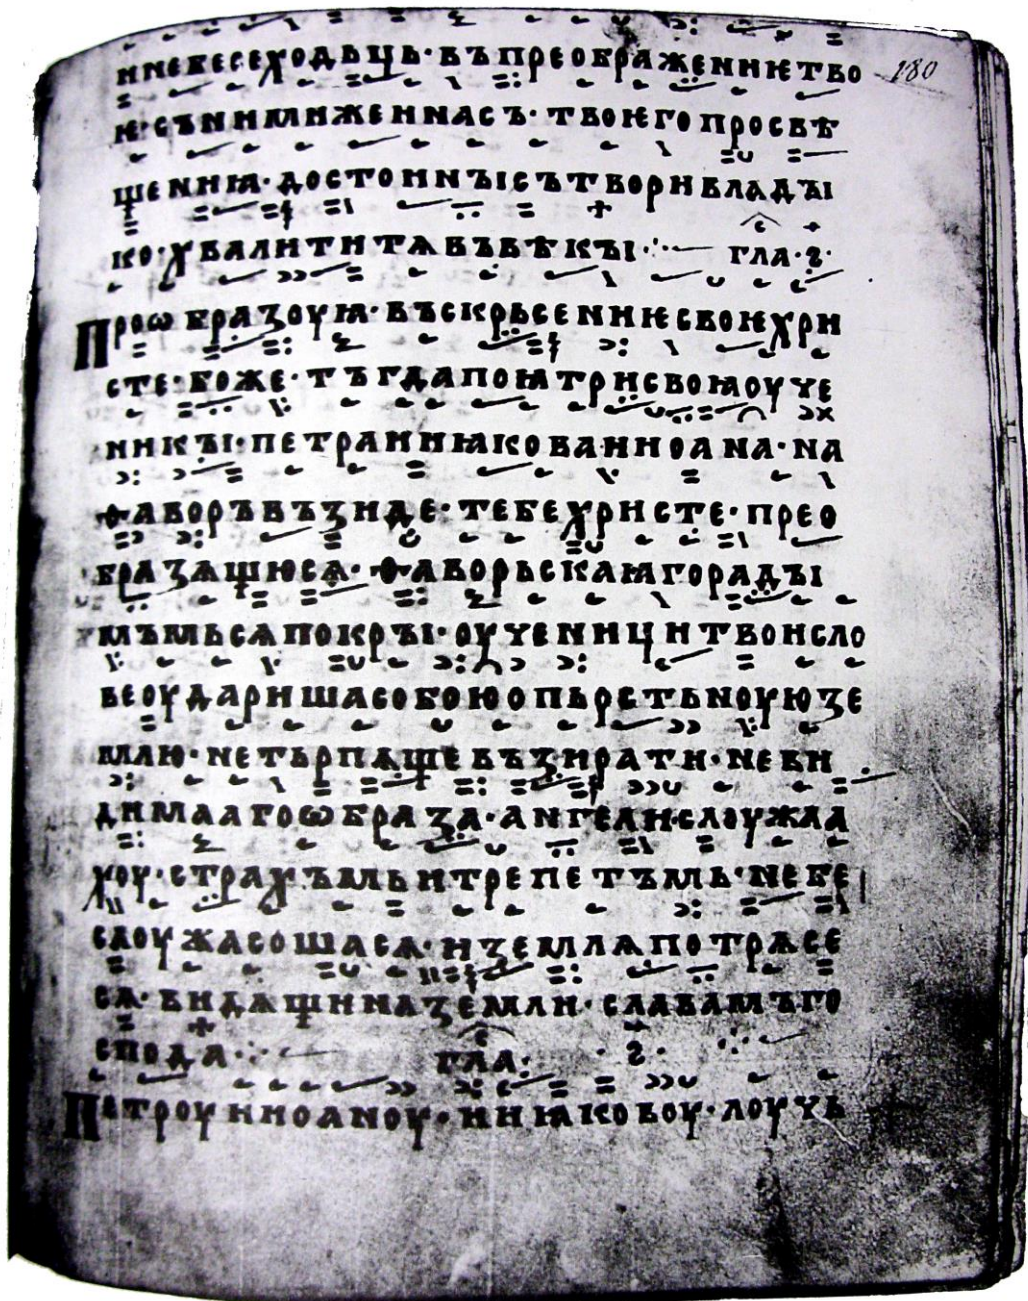 180
ннебесеходьць·въпреображеннѥтво
ѥ·сънимиженнасъ·твоѥгопросвѣ
щенниꙗ·достоинъісътворивладъі
ко·хвалититѧвъвѣкъі· гла·ꙅ҃·
Проѡбразоуꙗ·въскрьсенниѥсвоѥхри
сте·боже·тъгдапоꙗтрисвоꙗоуче
никъі·петраниꙗкованноана·на
ѳаворъвъзиде·тебехристе·прео
бразѧщюсѧ·ѳаворьскаꙗгорадъі
мъмьсѧпокръі·оученицитвоисло
веоударишасобоюопьрстьноуюзе
млю·нетьрпѧщевъзирати·неви
димаагоѡбраза·ангелислоужаа
хоу·страхъмьитрепетъмь·небе
саоужасошасѧ·иземлѧпотрѧсе
сѧ·видѧщиназемли·славамъго
спода· гла· ꙅ·
Петроуииоаноу·ииꙗковоу·лоучь